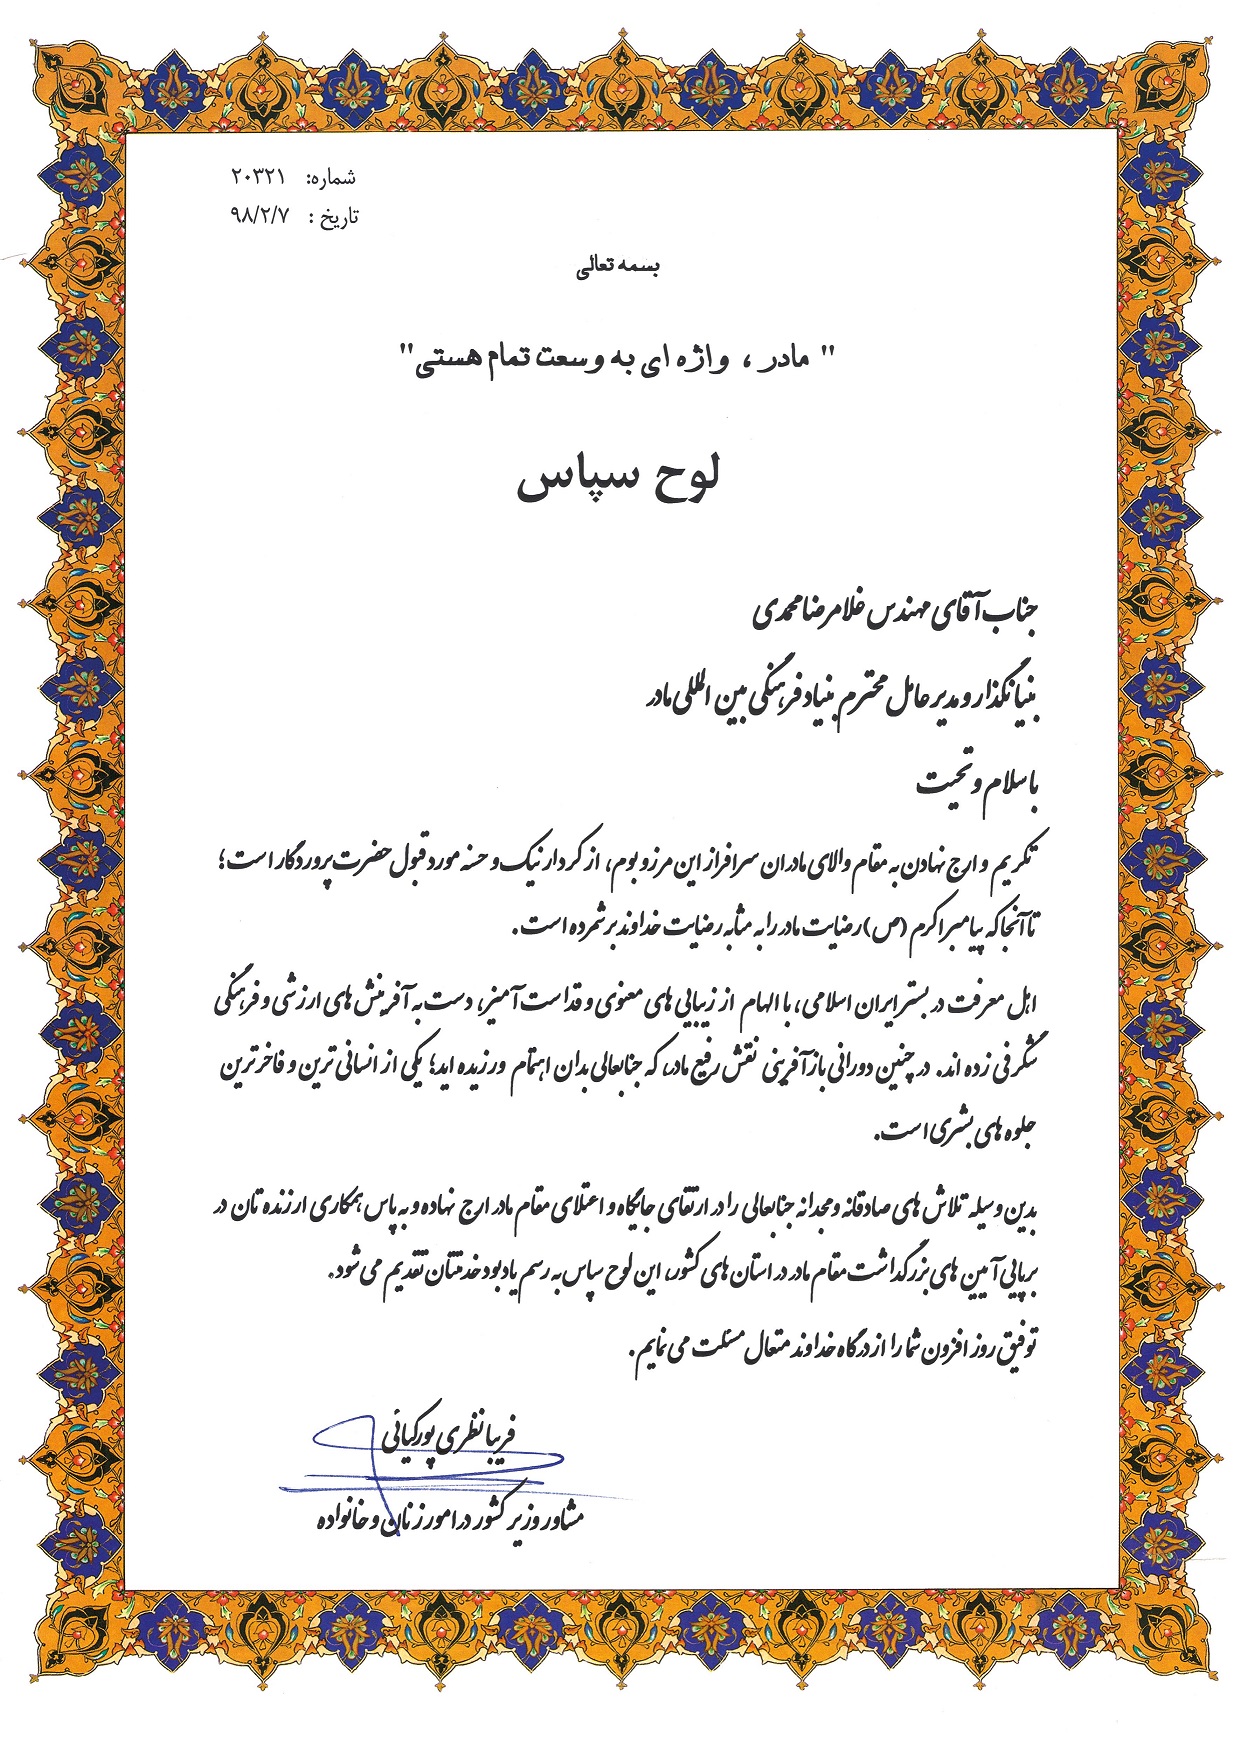 شماره: ۲۰۳۲۱
تاریخ : ۹۸/۲/۷
بسمه تعالی
" مادر ، واژه ای به وسعت تمام هستی"
لوح سپاس
جناب آقای مهندس غلامرضا محمدی
بنیانگذار و مدیر عامل محترم بنیاد فرهنگی بین المللی مادر
با سلام و تحیت
تکریم و ارج نهادن به مقام والای مادران سرافراز این مرز و بوم، از کردار نیک و حسنه مورد قبول حضرت پروردگار است؛
تا آنجا که پیامبر اکرم (ص) رضایت مادر را به مثابه رضایت خداوند برشمرده است.
اهل معرفت در بستر ایران اسلامی، با الهام از زیبایی های معنوی و قداست آمیز، دست به آفرینش های ارزشی و فرهنگی
شگرفی زده اند. در چنین دورانی باز آفرینی نقش رفیع مادر، که جنابعالی بدان اهتمام ورزیده اید؛ یکی از انسانی ترین و فاخرترین
جلوه های بشری است.
بدین وسیله تلاش های صادقانه و مجدانه جنابعالی را در ارتقای جایگاه و اعتلای مقام مادر ارج نهاده و به پاس همکاری ارزنده تان در
برپایی آیین های بزرگداشت مقام مادر در استان های کشور، این لوح سپاس به رسم یادبود خدمتتان تقدیم می شود.
توفیق روز افزون شما را از درگاه خداوند متعال مسئلت می نمایم.
فریبا نظری پورکیائی
مشاور وزیر کشور در امور زنان و خانواده